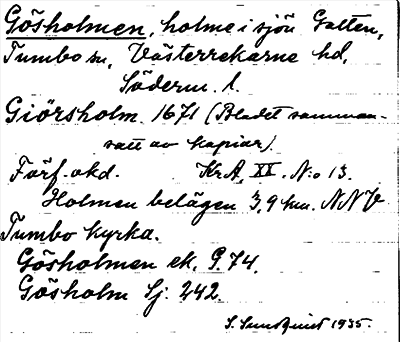 Gösholmen, holme i sjön Galten,
Tumbo sn, Västerrekarne hd,
Söderm. l.
Giörsholm 1671 (Bladet samman-
satt av kopior).
Förf. okd. Kr.A. XX. N:o 13.
Holmen belägen 3,9 km. NNV
Tumbo kyrka.
Gösholmen ek. G.74.
Gösholm Sj: 242.
S. Sundquist 1935.